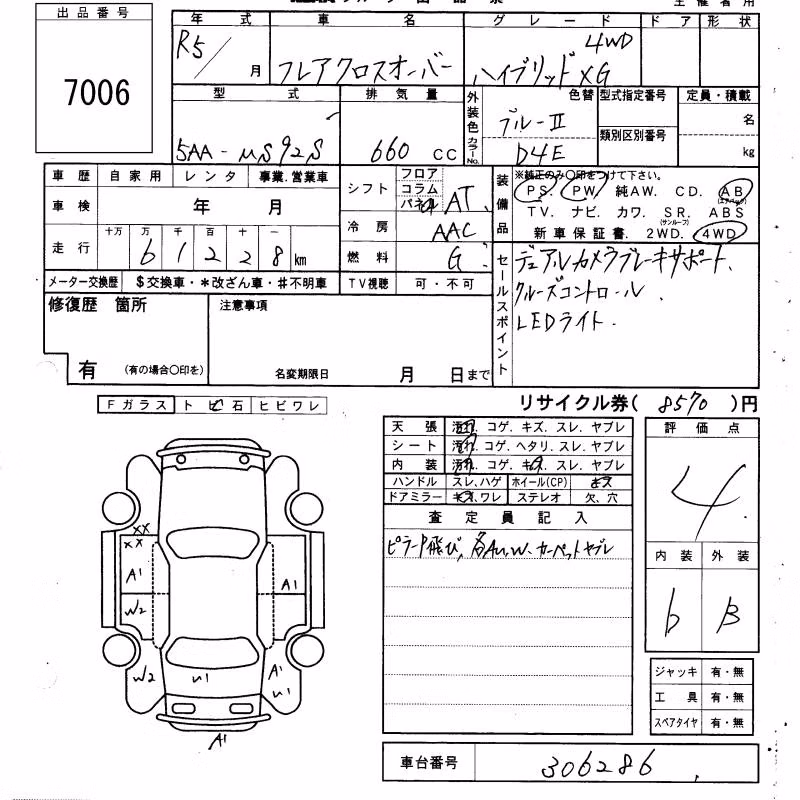 主催者用
出品番号
7006
年式 車名 グレード ドア 形状
R5/ 月 フレアクロスオーバー ハイブリッドXG 4WD
型式 排気量 外装色 色替 型式指定番号 定員・積載
5AA-MS92S 660 cc ブルーⅡ 名
カラーNo. D4E 類別区別番号 kg
車歴 自家用 レンタ 事業.営業車
車検 年 月
走行 十万 万 千 百 十 一
6 1 2 2 8 km
シフト フロア コラム パネル AT
冷房 AAC
燃料 G
装備品 ※純正のみ○印をつけて下さい。
PS. PW. 純AW. CD. AB (エアバック)
TV. ナビ. カワ. SR. (サンルーフ) ABS
新車保証書. 2WD. 4WD
メーター交換歴 $交換車・*改ざん車・#不明車 TV視聴 可・不可
セールスポイント
デュアルカメラブレーキサポート、
クルーズコントロール、
LEDライト.
修復歴 箇所
有 (有の場合○印を)
注意事項
名変期限日 月 日まで
リサイクル券( 8570 )円
Fガラス トビ石 ヒビワレ
天張 汚れ. コゲ. キズ. スレ. ヤブレ
シート 汚れ. コゲ. ヘタリ. スレ. ヤブレ
内装 汚れ. コゲ. キズ. スレ. ヤブレ
ハンドル スレ、ハゲ ホイール(CP) キズ
ドアミラー キズ、ワレ ステレオ 欠、穴
査定員記入
ピラーP飛び、各AU,W、カーペットヤブレ
評価点
4
内装 外装
b B
XX
XX
A1
W2
W2
A1
A1
U1
U1
A1
ジャッキ 有・無
工具 有・無
スペアタイヤ 有・無
車台番号 306286